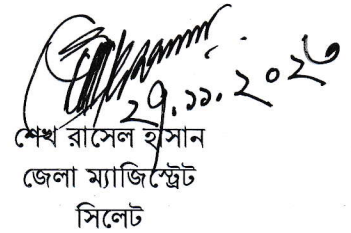 ২৭.১১.২০২৩
শেখ রাসেল হাসান
জেলা ম্যাজিস্ট্রেট
সিলেট